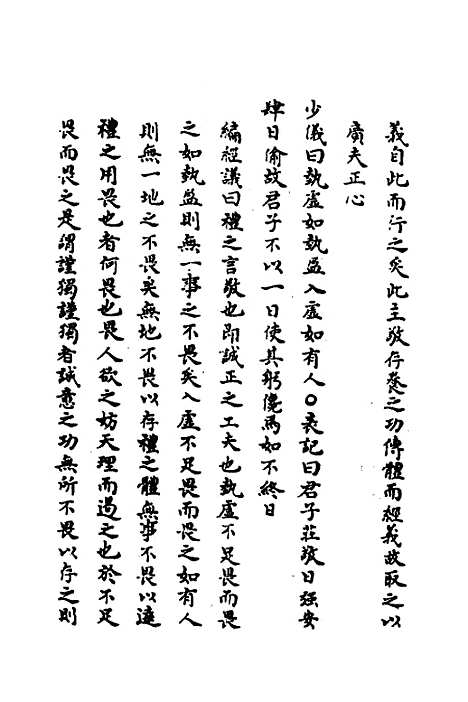 義自此而行之矣此主敬存養之功傳體而經義故取之以
廣夫正心
少儀曰執虛如執盈入虛如有人○表記曰君子莊敬日強安
肆日偷故君子不以一日使其躬儳焉如不終日
緝經議曰禮之言敬也即誠正之工夫也執虛不足畏而畏
之如執盈則無一事之不畏矣入虛不足畏而畏之如有人
則無一地之不畏矣無地不畏以存禮之體無事不畏以達
禮之用畏也者何畏也畏人欲之妨天理而遏之也於不足
畏而畏之是謂謹獨謹獨者誠意之功無所不畏以存之則